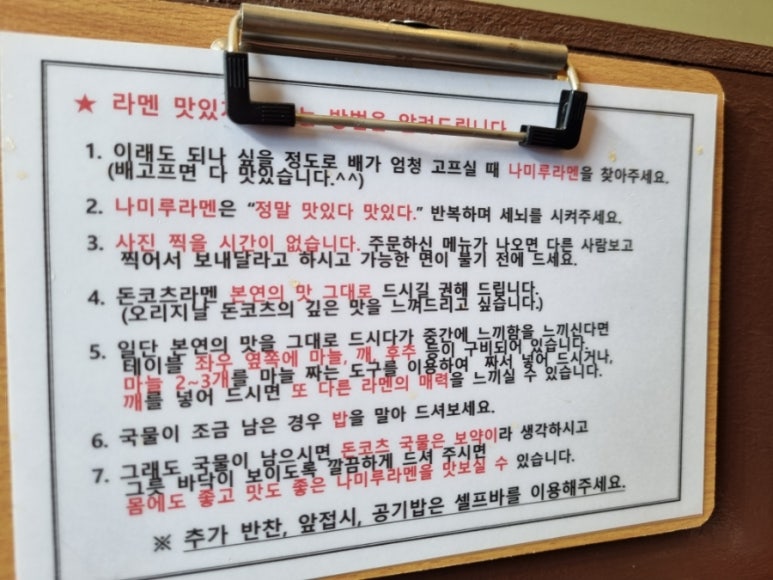 ★ 라멘 맛있 는 방법을 알려드립니다
1. 이래도 되나 싶을 정도로 배가 엄청 고프실 때 나미루라멘을 찾아주세요.
(배고프면 다 맛있습니다.^^)
2. 나미루라멘은 “정말 맛있다 맛있다.” 반복하며 세뇌를 시켜주세요.
3. 사진 찍을 시간이 없습니다. 주문하신 메뉴가 나오면 다른 사람보고
찍어서 보내달라고 하시고 가능한 면이 불기 전에 드세요.
4. 돈코츠라멘 본연의 맛 그대로 드시길 권해 드립니다.
(오리지날 돈코츠의 깊은 맛을 느껴드리고 싶습니다.)
5. 일단 본연의 맛을 그대로 드시다가 중간에 느끼함을 느끼신다면
테이블 좌우 옆쪽에 마늘, 깨, 후추 등이 구비되어 있습니다.
마늘 2~3개를 마늘 짜는 도구를 이용하여 짜서 넣어 드시거나,
깨를 넣어 드시면 또 다른 라멘의 매력을 느끼실 수 있습니다.
6. 국물이 조금 남은 경우 밥을 말아 드셔보세요.
7. 그래도 국물이 남으시면 돈코츠 국물은 보약이라 생각하시고
그릇 바닥이 보이도록 깔끔하게 드셔 주시면
몸에도 좋고 맛도 좋은 나미루라멘을 맛보실 수 있습니다.
※ 추가 반찬, 앞접시, 공기밥은 셀프바를 이용해주세요.